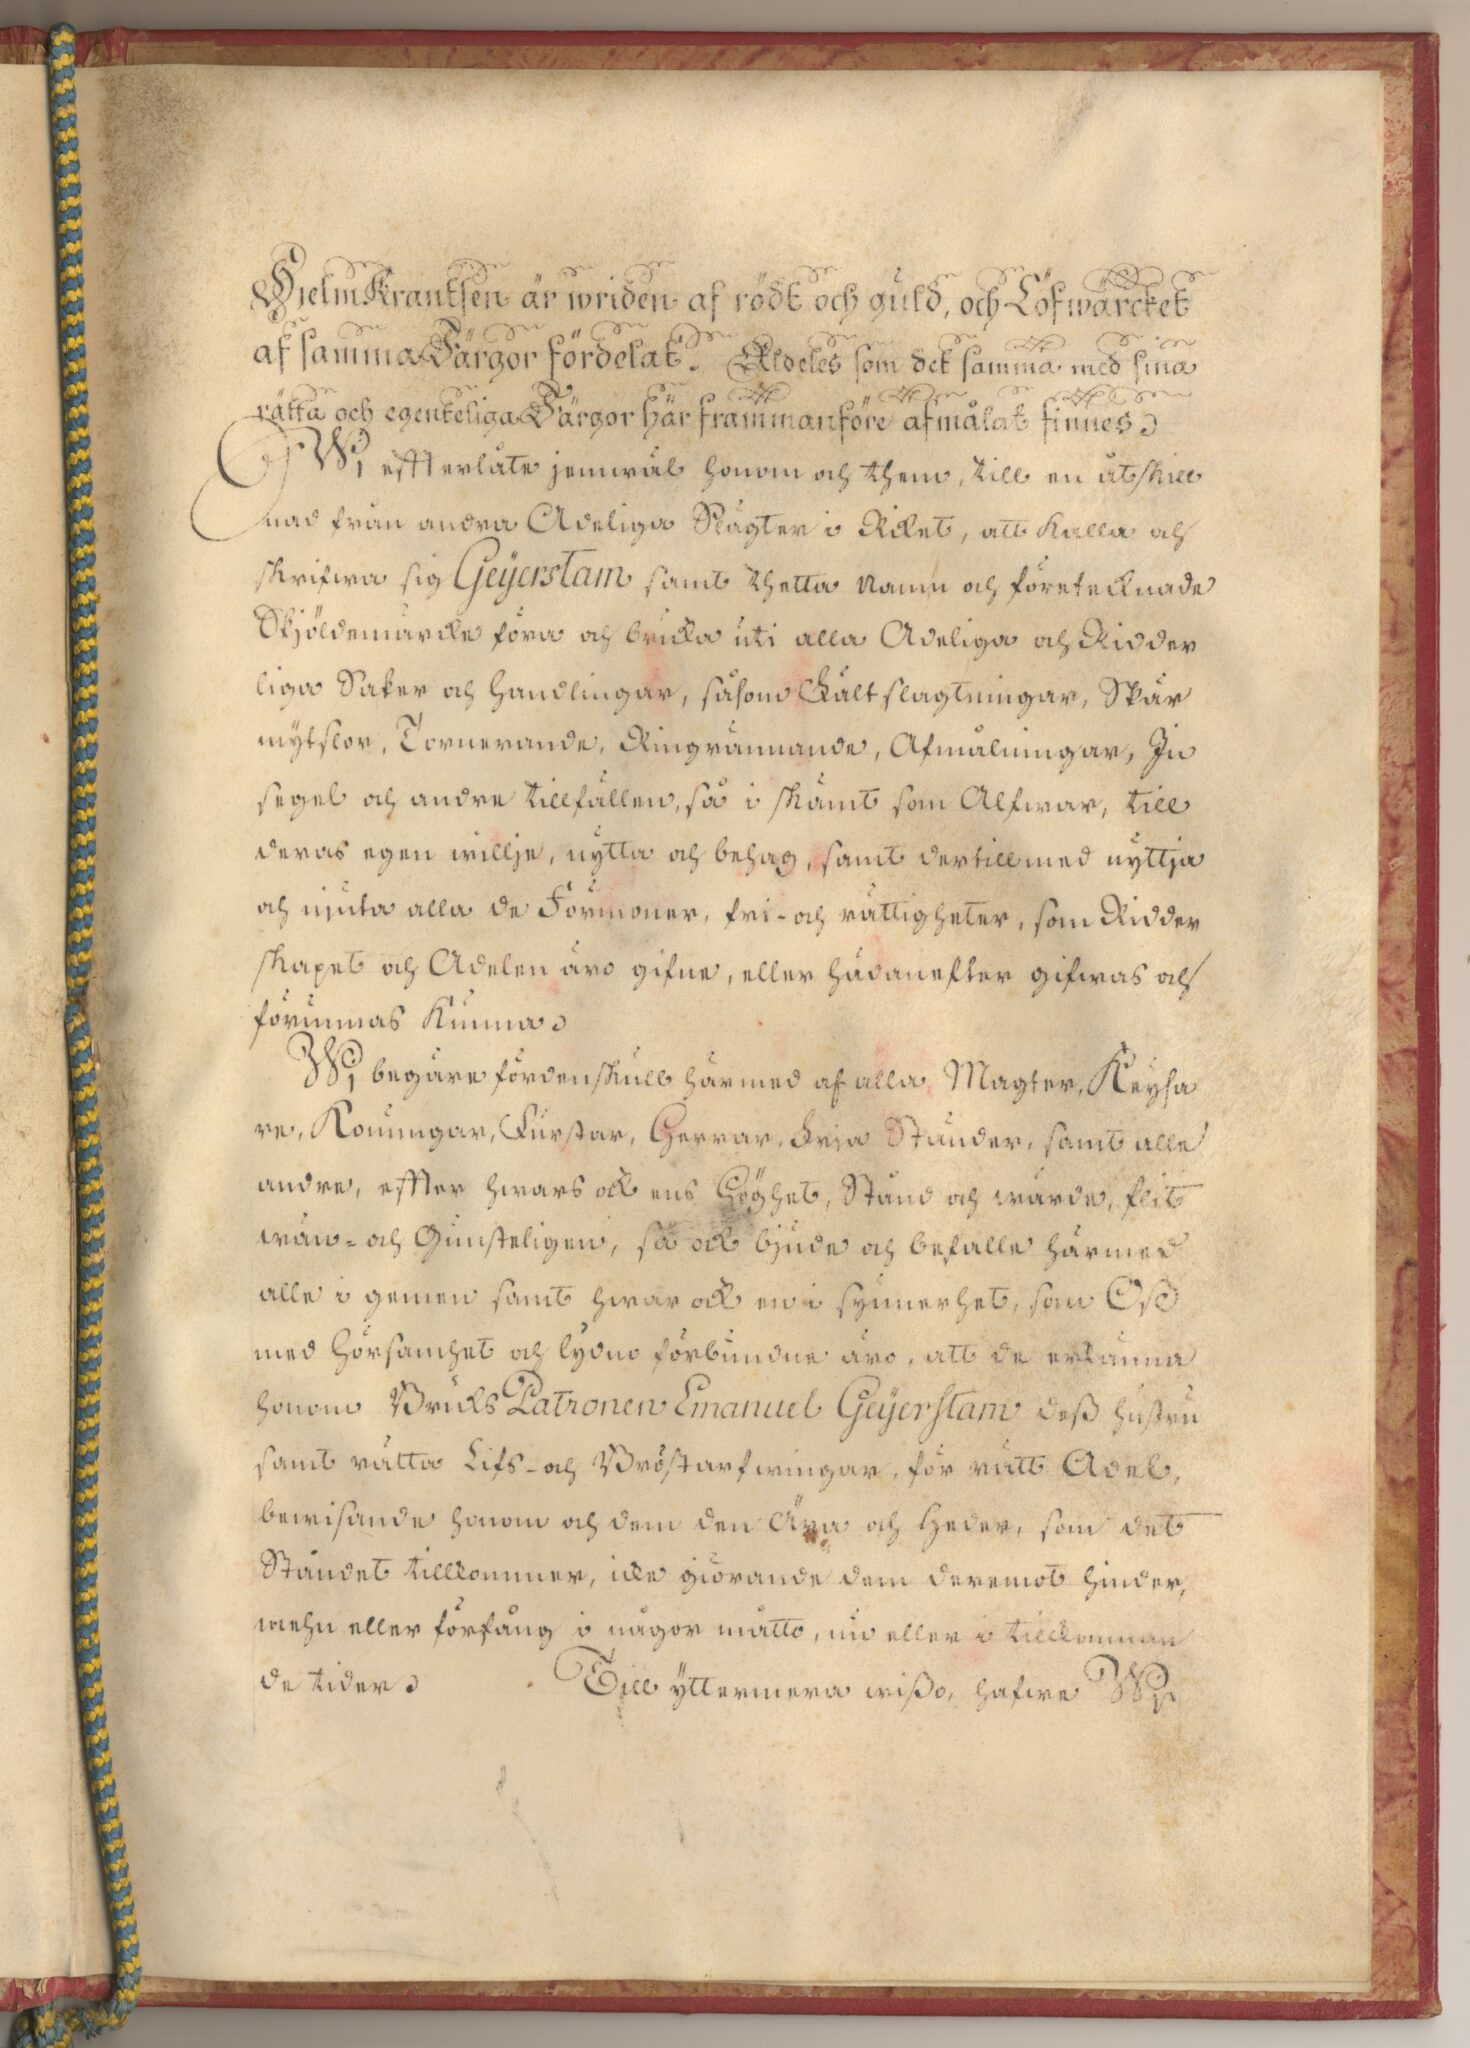 HjelmKrantsen är wriden af rödt och guld, och Löfwärcket
af samma Färgor fördelat. Aldeles som det samma med sina
rätta och egenteliga Färgor här frammanföre afmålat finnes.
Wi effterlåte jemwäl honom och them, till en åtskill
nad från andra Adeliga Slägter i Riket, att kalla och
skrifwa sig Geijerstam samt thetta Namn och företecknade
Skjöldemärcke föra och bruka uti alla Adeliga och Ridder
liga Saker och Handlingar, såsom Fältslagtningar, Skär
mytslor, Tornerande, Ringrännande, Afmålningar, In
segel och andre tillfällen, så i skämt som Alfwar, till
deras egen willje, nytta och behag, samt dertill med nyttja
och njuta alla de Förmoner, fri- och rättigheter, som Ridder
skapet och Adelen äro gifne, eller hädanefter gifwas och
förunnas kunna.
Wi begäre fördenskull härmed af alla Magter, Keysa
re, Konungar, Furstar, Herrar, Fria Ständer, samt alle
andre, effter hwars och ens Höghet, Stånd och wärde, flit
wän- och Gunsteligen, så ock bjude och befalle härmed
alle i gemen samt hwar och en i synnerhet, som Oss
med Hörsamhet och lydno förbundne äro, att de erkänna
honom Bruks Patronen Emanuel Geijerstam dess hustru
samt rätta Lifs- och Bröstarfwingar, för rätt Adel,
bewisande honom och dem den Ära och Heder, som det
Ståndet tillkommer, icke giörande dem deremot hinder,
mehn eller förfång i någor måtto, nu eller i tillkomman
de tider. Till yttermera wisso, hafwe Wi